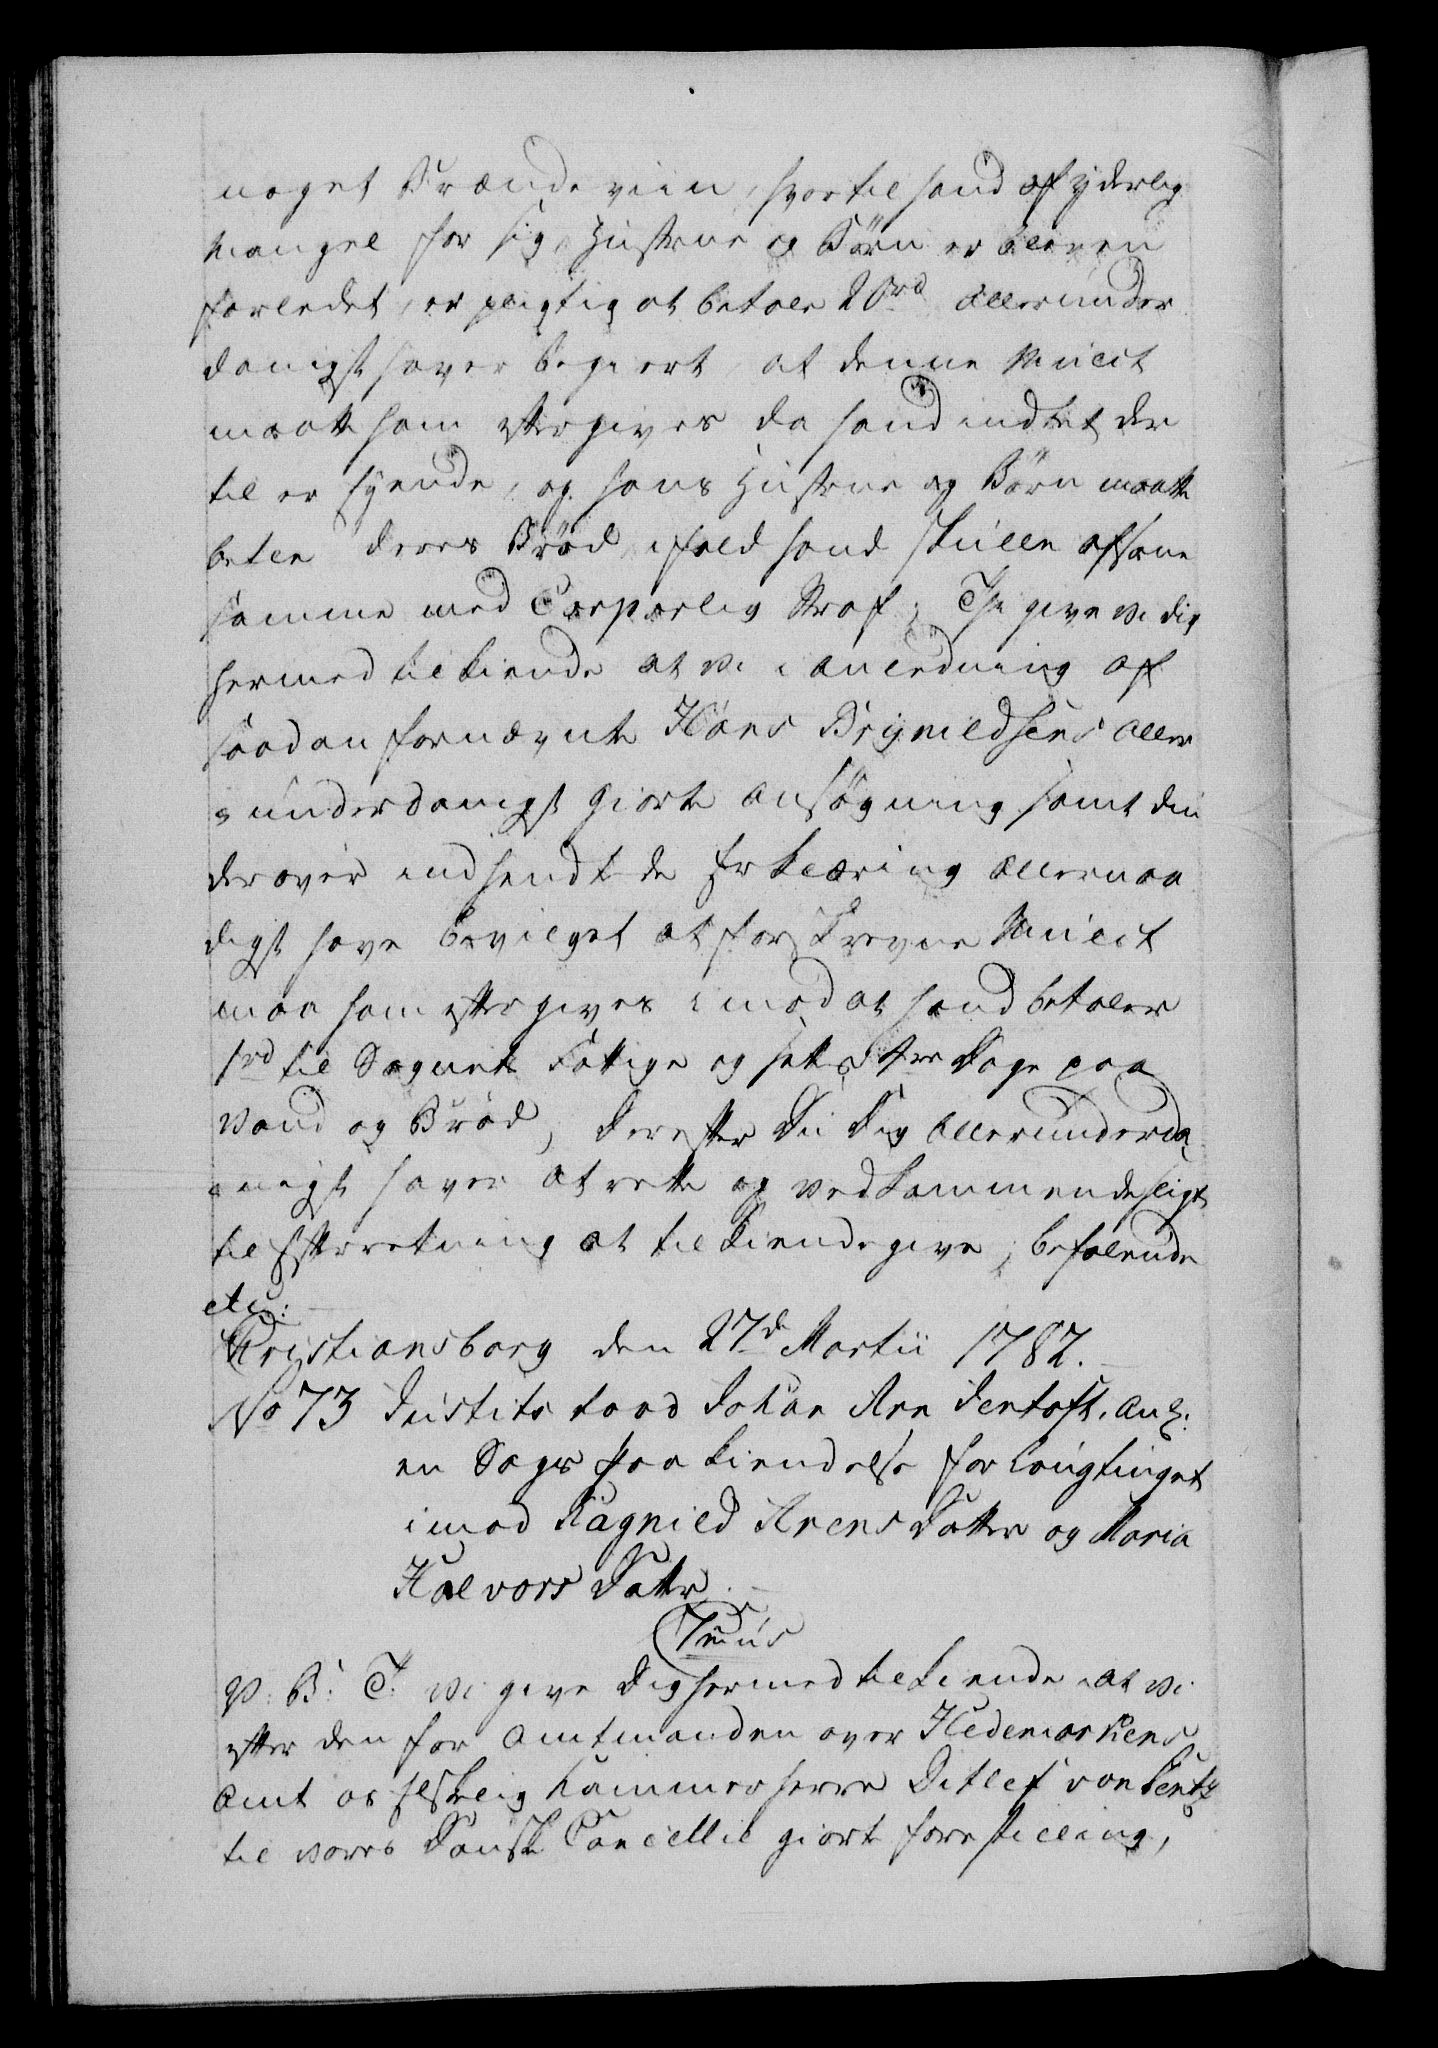 noget Brændeviin, hvortil hand af yderlig
Mangel for sig, Hustrue og Börn er bleven
forledet, er pligtig at betale 20rd allerunder
danigst haver begiert, at denne Mulct
maatte ham eftergives da hand indtet der
til er eyende, og hans Hustrue og Börn maatte
betle deres Bröd, ifald hand skulle afsone
samme med Corporlig Straf; Thi give vi dig
hermed tilkiende at vi i anledning af
saadan fornævnte Hans Brynildsens aller
underdanigst giorte ansögning samt din
derover indsendte de Erklæring allernaa
digst have bevilget at forskrevne Mulct
maa ham eftergives imod at hand betaler
1rd til Sognets Fattige og sættes 4re Dage paa
Vand og Bröd, derefter Du dig allerunderda
nigst haver at rette og vedkommende sligt
til Efterretning at tilkiendegive; befalende
etc:
Christiansborg den 27de Martii 1782.
No 73 Justitsraad Johan Arn dentoft, anl:
en Sags Paakiendelse for Laugtinget
imod Ragnild Arens Datter og Maria
Halvors Datter.
7mus
V: B: T: vi give dig hermed tilkiende at vi
efter den for Amtmanden over Hedemarkens
Amt os elskelig Kammerherre Ditlef von Pentz
til vores Danske Cancellie giorte forestilling,